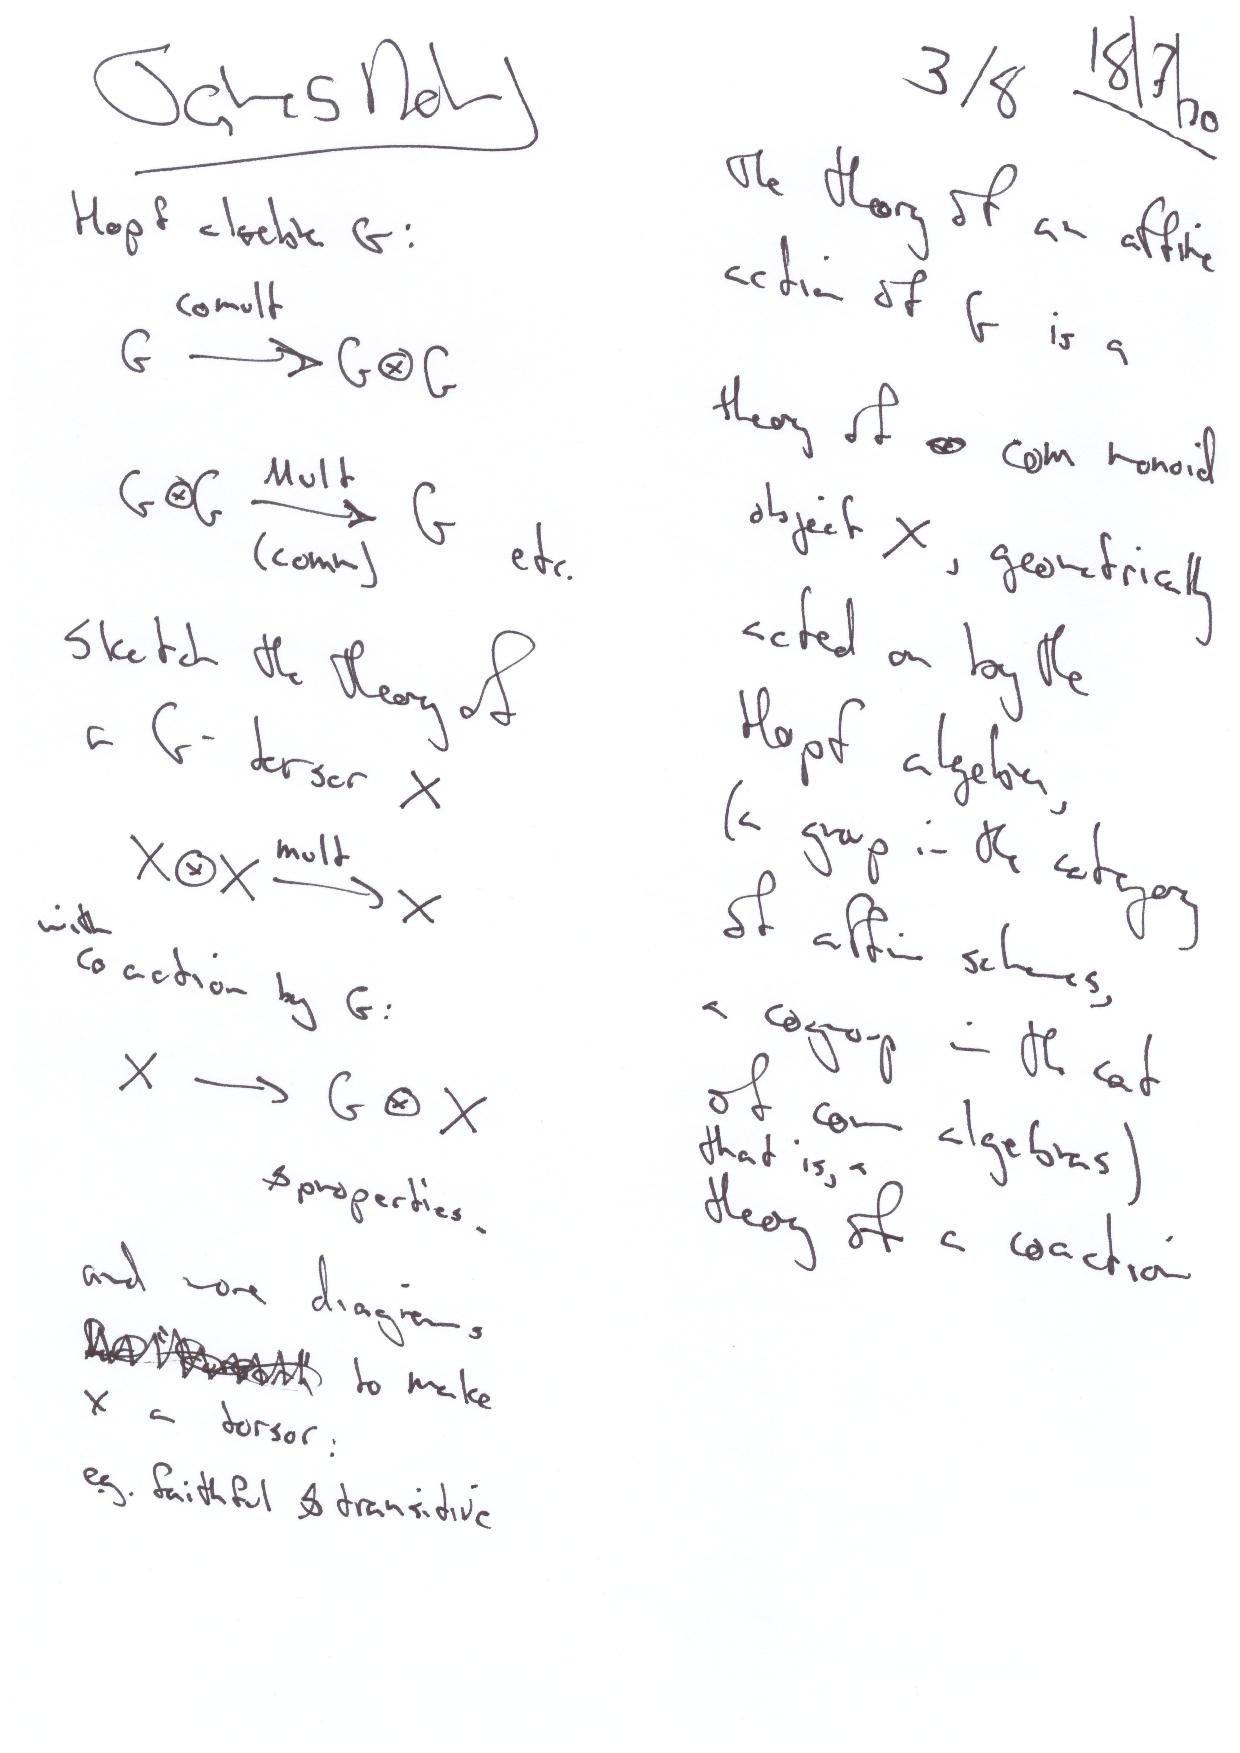 James Dol
3/8 18/7/10
Hopf algebra G:
comult
G → G⊗G
G⊗G Mult → G
(comm) etc.
Sketch the theory of
a G-torsor X
X⊗X mult → X
with
coaction by G:
X → G⊗X
& properties.
and more diagrams
to make
X a torsor:
eg. faithful & transitive
The theory of an affine
action of G is a
theory of com monoid
object X, geometrically
acted on by the
Hopf algebra,
(a group in the category
of affin schemes,
a cogroup in the cat
of com algebras)
that is, a
theory of a coaction